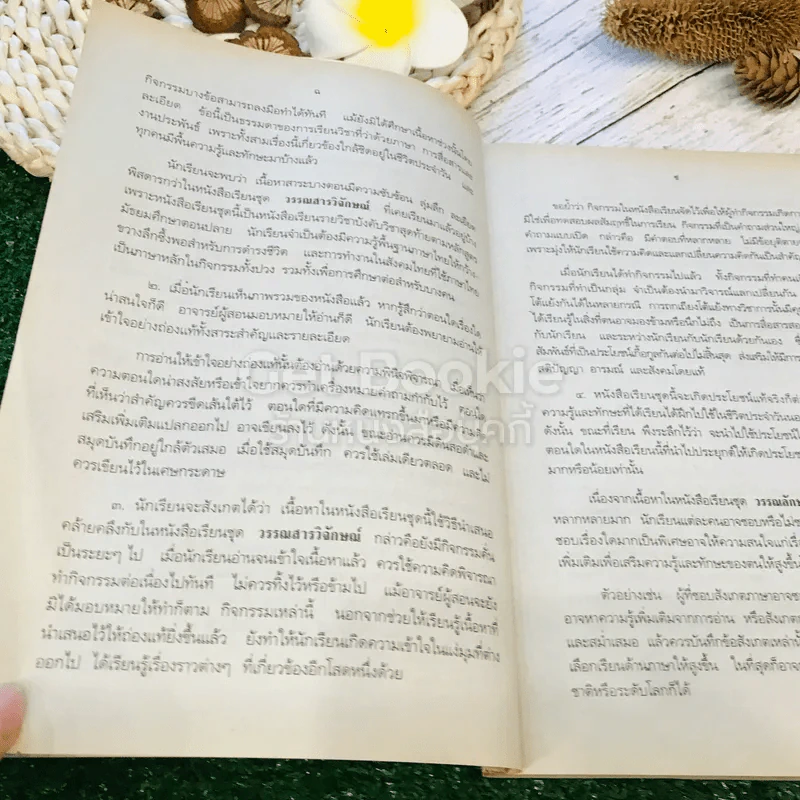 ๘
กิจกรรมบางข้อสามารถลงมือทำได้ทันที แม้ยังมิได้ศึกษาเนื้อหาช่วงนั้นโดย
ละเอียด ข้อนี้เป็นธรรมดาของการเรียนวิชาที่ว่าด้วยภาษา การสื่อสารและ
งานประพันธ์ เพราะทั้งสามเรื่องนี้เกี่ยวข้องใกล้ชิดอยู่ในชีวิตประจำวัน และ
ทุกคนมีพื้นความรู้และทักษะมาบ้างแล้ว
นักเรียนจะพบว่า เนื้อหาสาระบางตอนมีความซับซ้อน ลุ่มลึก ละเอียด
พิสดารกว่าในหนังสือเรียนชุด วรรณสารวิจักษณ์ ที่เคยเรียนมาแล้วอยู่บ้าง
เพราะหนังสือเรียนชุดนี้เป็นหนังสือเรียนรายวิชาบังคับวิชาสุดท้ายตามหลักสูตร
มัธยมศึกษาตอนปลาย นักเรียนจำเป็นต้องมีความรู้พื้นฐานภาษาไทยให้กว้าง
ขวางลึกซึ้งพอสำหรับการดำรงชีวิต และการทำงานในสังคมไทยที่ใช้ภาษาไทย
เป็นภาษาหลักในกิจกรรมทั้งปวง รวมทั้งเพื่อการศึกษาต่อสำหรับบางคน
๒. เมื่อนักเรียนเห็นภาพรวมของหนังสือแล้ว หากรู้สึกว่าตอนใดเรื่องใด
น่าสนใจก็ดี อาจารย์ผู้สอนมอบหมายให้อ่านก็ดี นักเรียนต้องพยายามอ่านให้
เข้าใจอย่างถ่องแท้ทั้งสาระสำคัญและรายละเอียด
การอ่านให้เข้าใจอย่างถ่องแท้นั้นต้องอ่านด้วยความพินิจพิจารณา เมื่อเห็นว่า
ความตอนใดน่าสงสัยหรือเข้าใจยากควรทำเครื่องหมายคำถามกำกับไว้ ตอนใด
ที่เห็นว่าสำคัญควรขีดเส้นใต้ไว้ ตอนใดที่มีความคิดแทรกขึ้นมาหรือมีความรู้
เสริมเพิ่มเติมแปลกออกไป อาจเขียนลงไว้ ดังนั้น ขณะอ่านควรมีดินสอดำและ
สมุดบันทึกอยู่ใกล้ตัวเสมอ เมื่อใช้สมุดบันทึก ควรใช้เล่มเดียวตลอด และไม่
ควรเขียนไว้ในเศษกระดาษ
๓. นักเรียนจะสังเกตได้ว่า เนื้อหาในหนังสือเรียนชุดนี้ใช้วิธีนำเสนอ
คล้ายคลึงกับในหนังสือเรียนชุด วรรณสารวิจักษณ์ กล่าวคือยังมีกิจกรรมคั่น
เป็นระยะๆ ไป เมื่อนักเรียนอ่านจนเข้าใจเนื้อหาแล้ว ควรใช้ความคิดพิจารณา
ทำกิจกรรมต่อเนื่องไปทันที ไม่ควรทิ้งไว้หรือข้ามไป แม้อาจารย์ผู้สอนจะยัง
มิได้มอบหมายให้ทำก็ตาม กิจกรรมเหล่านี้ นอกจากช่วยให้เรียนรู้เนื้อหาที่
นำเสนอไว้ให้ถ่องแท้ยิ่งขึ้นแล้ว ยังทำให้นักเรียนเกิดความเข้าใจในแง่มุมที่ต่าง
ออกไป ได้เรียนรู้เรื่องราวต่างๆ ที่เกี่ยวข้องอีกโสดหนึ่งด้วย
๙
ขอย้ำว่า กิจกรรมในหนังสือเรียนจัดไว้เพื่อให้ผู้ทำกิจกรรมเกิดการ
มิใช่เพื่อทดสอบผลสัมฤทธิ์ในการเรียน กิจกรรมที่เป็นคำถามส่วนใหญ่
คำถามแบบเปิด กล่าวคือ มีคำตอบที่หลากหลาย ไม่มีข้อยุติตาย
เพราะมุ่งให้นักเรียนใช้ความคิดและแลกเปลี่ยนความคิดกันเป็นสำคัญ
เมื่อนักเรียนได้ทำกิจกรรมไปแล้ว ทั้งกิจกรรมที่ทำคน
กิจกรรมที่ทำเป็นกลุ่ม จำเป็นต้องนำมาวิจารณ์แลกเปลี่ยนกัน
โต้แย้งกันได้ในหลายกรณี การถกเถียงโต้แย้งทางวิชาการนั้น
ได้เรียนรู้ในสิ่งที่ตนอาจมองข้ามหรือนึกไม่ถึง เป็นการสื่อสาร
กับนักเรียน และระหว่างนักเรียนกับนักเรียนด้วยกันเอง
สัมพันธ์ที่เป็นประโยชน์เกื้อกูลกันต่อไปไม่สิ้นสุด ส่งเสริมให้มี
สติปัญญา อารมณ์ และสังคมโดยแท้
๔. หนังสือเรียนชุดนี้จะเกิดประโยชน์แท้จริงก็
ความรู้และทักษะที่ได้เรียนได้ฝึกไปใช้ในชีวิตประจำวัน
ดังนั้น ขณะที่เรียน พึงระลึกไว้ว่า จะนำไปใช้ประโยชน์
ตอนใดในหนังสือเรียนนี้ที่นำไปประยุกต์ให้เกิดประโย
มากหรือน้อยเท่านั้น
เนื่องจากเนื้อหาในหนังสือเรียนชุด วรรณลักษ
หลากหลายมาก นักเรียนแต่ละคนอาจชอบหรือไม่ช
ชอบเรื่องใดมากเป็นพิเศษอาจให้ความสนใจแก่เรื่
เพิ่มเติมเพื่อเสริมความรู้และทักษะของตนให้สูงขึ้น
ตัวอย่างเช่น ผู้ที่ชอบสังเกตภาษาอาจช
อาจหาความรู้เพิ่มเติมจากการอ่าน หรือสังเกต
และสม่ำเสมอ แล้วควรบันทึกข้อสังเกตเหล่านั้
เลือกเรียนด้านภาษาให้สูงขึ้น ในที่สุดก็อาจ
ชาติหรือระดับโลกก็ได้
Get Bookie
ร้านหนังสือบุ๊คกี้